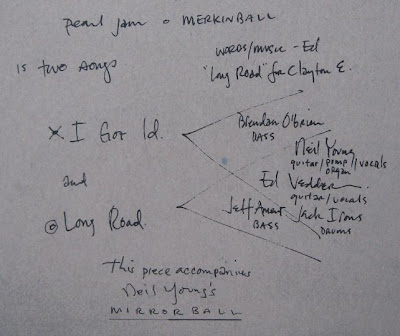 pearl jam o MERKINBALL
words/music - Ed
is two songs
"Long Road" for Clayton E.
x I Got Id.
Brendan O'Brien
BASS
Neil Young
guitar/pump organ/vocals
and
Ed Vedder
guitar/vocals
@ Long Road.
Jeff Ament
BASS
Jack Irons
DRUMS
This piece accompanies
Neil Young's
MIRRORBALL